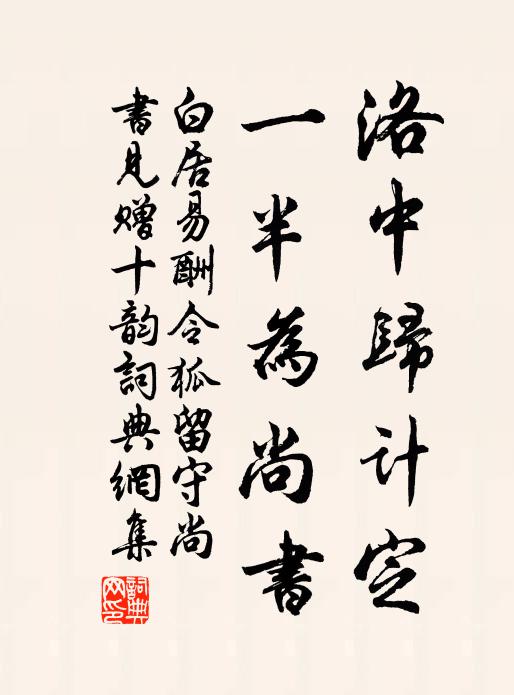 洛中歸计定
一半為尚書
白居易酬令狐留守尚
書見贈十韵詞典網集
詞典
网印